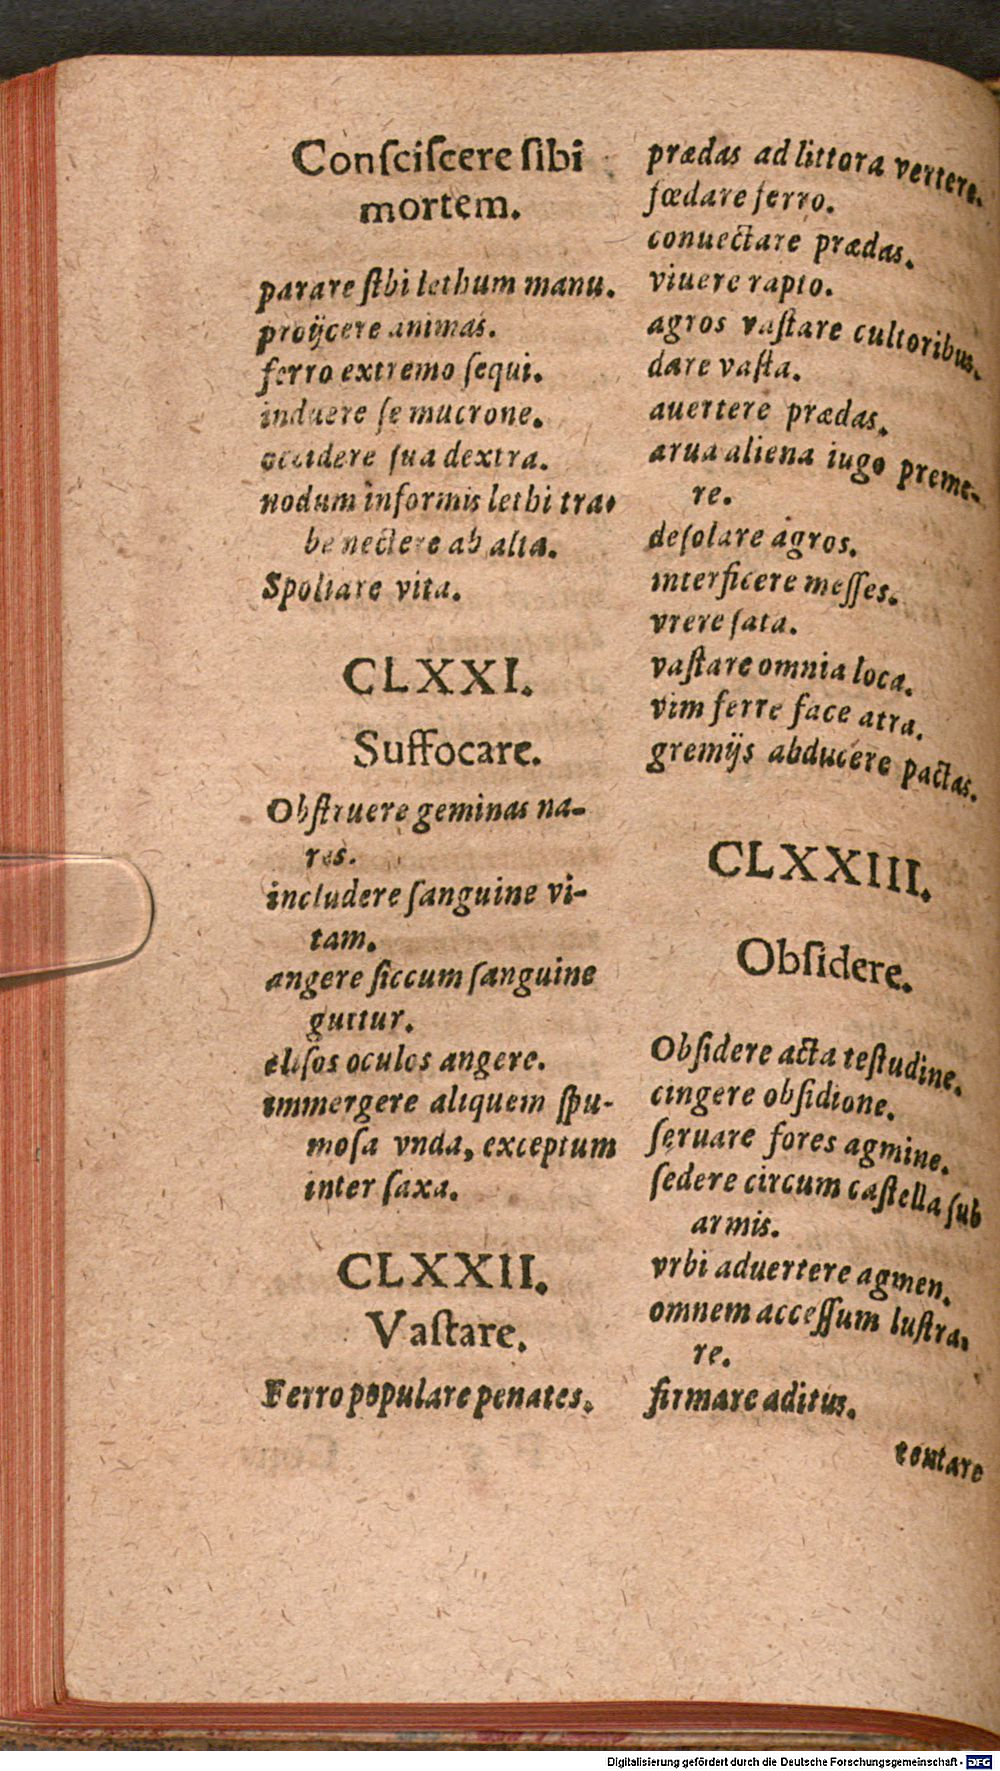 Conſciſcere ſibi
mortem.
parare ſibi lethum manu.
proijcere animas.
ferro extremo ſequi.
induere ſe mucrone.
occidere ſua dextra.
nodum informis lethi tra-
be nectere ab alta.
Spoliare vita.
CLXXI.
Suffocare.
Obſtruere geminas na-
res.
includere ſanguine vi-
tam.
angere ſiccum ſanguine
guttur.
eliſos oculos angere.
immergere aliquem ſpu-
moſa vnda, exceptum
inter ſaxa.
CLXXII.
Vaſtare.
Ferro populare penates.
prædas ad littora vertere.
fœdare ferro.
conuectare prædas.
viuere rapto.
agros vaſtare cultoribus.
dare vaſta.
auertere prædas.
arua aliena iugo preme-
re.
deſolare agros.
interficere meſſes.
vrere ſata.
vaſtare omnia loca.
vim ferre face atra.
gremijs abducere pactas.
CLXXIII.
Obſidere.
Obſidere acta teſtudine.
cingere obſidione.
ſeruare fores agmine.
ſedere circum caſtella ſub
armis.
vrbi aduertere agmen.
omnem acceſſum luſtra-
re.
firmare aditus.
tentare
Digitalisierung gefördert durch die Deutsche Forschungsgemeinschaft - DFG